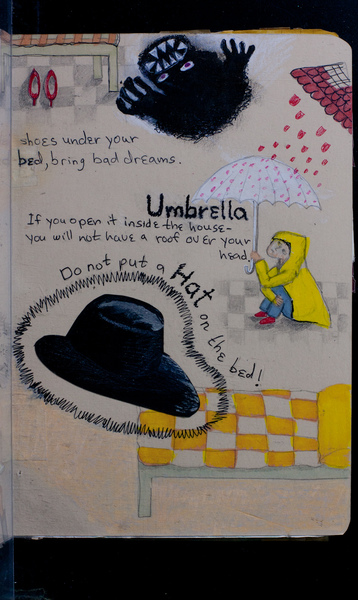 shoes under your
bed, bring bad dreams.
Umbrella
If you open it inside the house-
you will not have a roof over your
head.
Do not put a Hat on the bed!